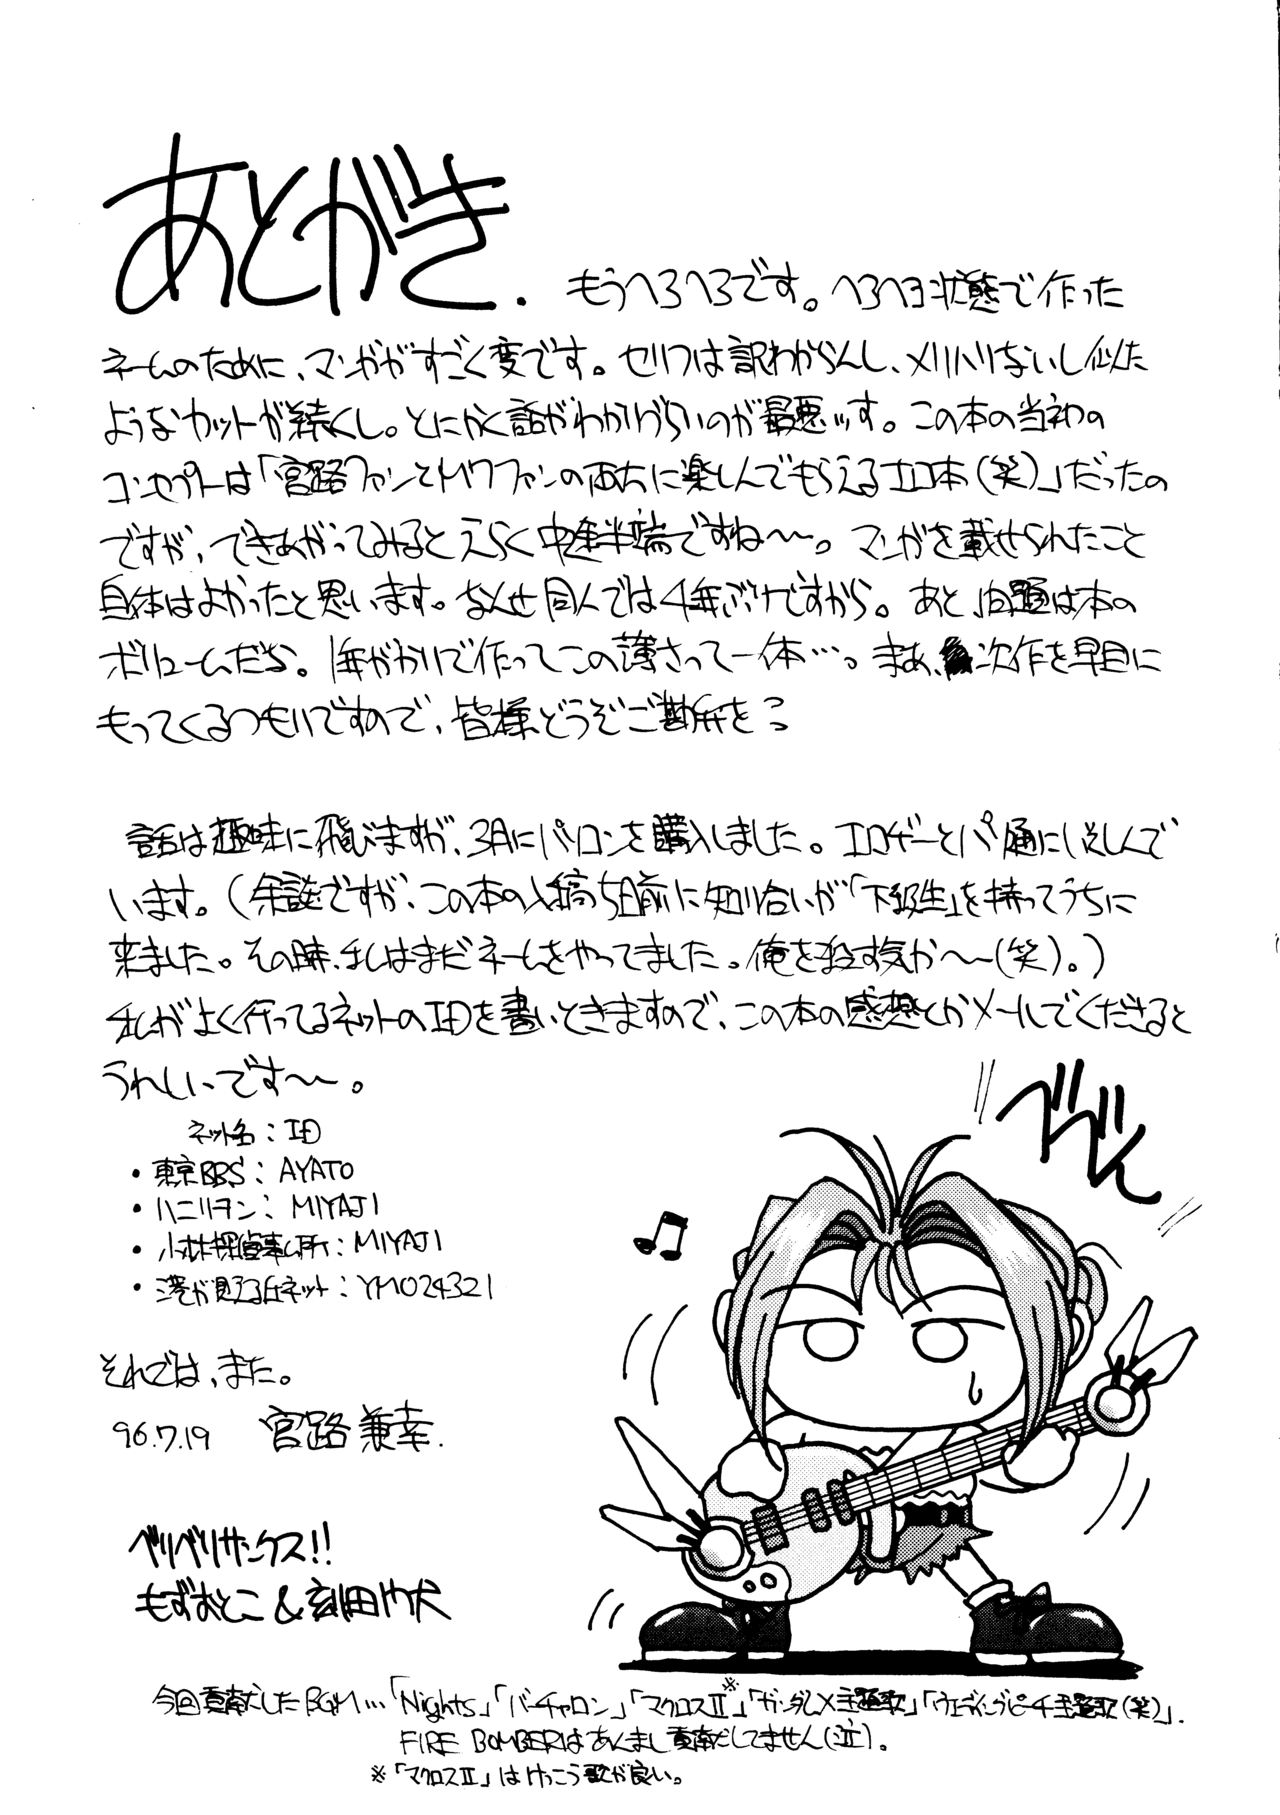 あとがき. もうヘろヘろです。ヘろヘろ状態で作った
ネームのために、マンガがすごく変です。セリフは訳わからんし、メリハリないし似た
ようなカットが続くし。とにかく話がわかりづらいのが最悪ッす。この本の当初の
コンセプトは「宮路ファンとMWファンの両方に楽しんでもらえるエロ本(笑)」だったの
ですが、できあがってみるとえらく中途半端ですね〜〜。マンガを載せられたこと
自体はよかったと思います。なんせ同人では4年ぶりですから。あと、問題は本の
ボリュームだな。1年がかりで作ってこの薄さって一体…。まあ、次作を早目に
もってくるつもりですので、皆様どうぞご勘弁をっっ
話は趣味に飛びますが、3月にパソコンを購入しました。エロゲーとパソ通にいそしんで
います。(余談ですが、この本の入稿5日前に知り合いが「下級生」を持ってうちに
来ました。その時、私はまだネームをやってました。俺を殺す気か〜〜(笑)。)
私がよく行ってるネットのIDを書いときますので、この本の感想とかメールでくださると
うれしいです〜〜。
ネット名:ID
・東京BBS:AYATO
・ハニリヲン:MIYAJI
・小林探偵事ム所:MIYAJI
・港が見える丘ネット:YMO24321
ベベベン
♪
それでは、また。
96.7.19 宮路兼幸.
ベリベリサンクス!!
もずおとこ&刻田门犬
今回貢献したBGM…「Nights」「バーチャロン」「マクロスII※」「ガンダムX主題歌」「ウェディングピーチ主題歌(笑)」.
FIRE BOMBERはあんまし貢献してません(泣)。
※「マクロスII」はけっこう歌が良い。